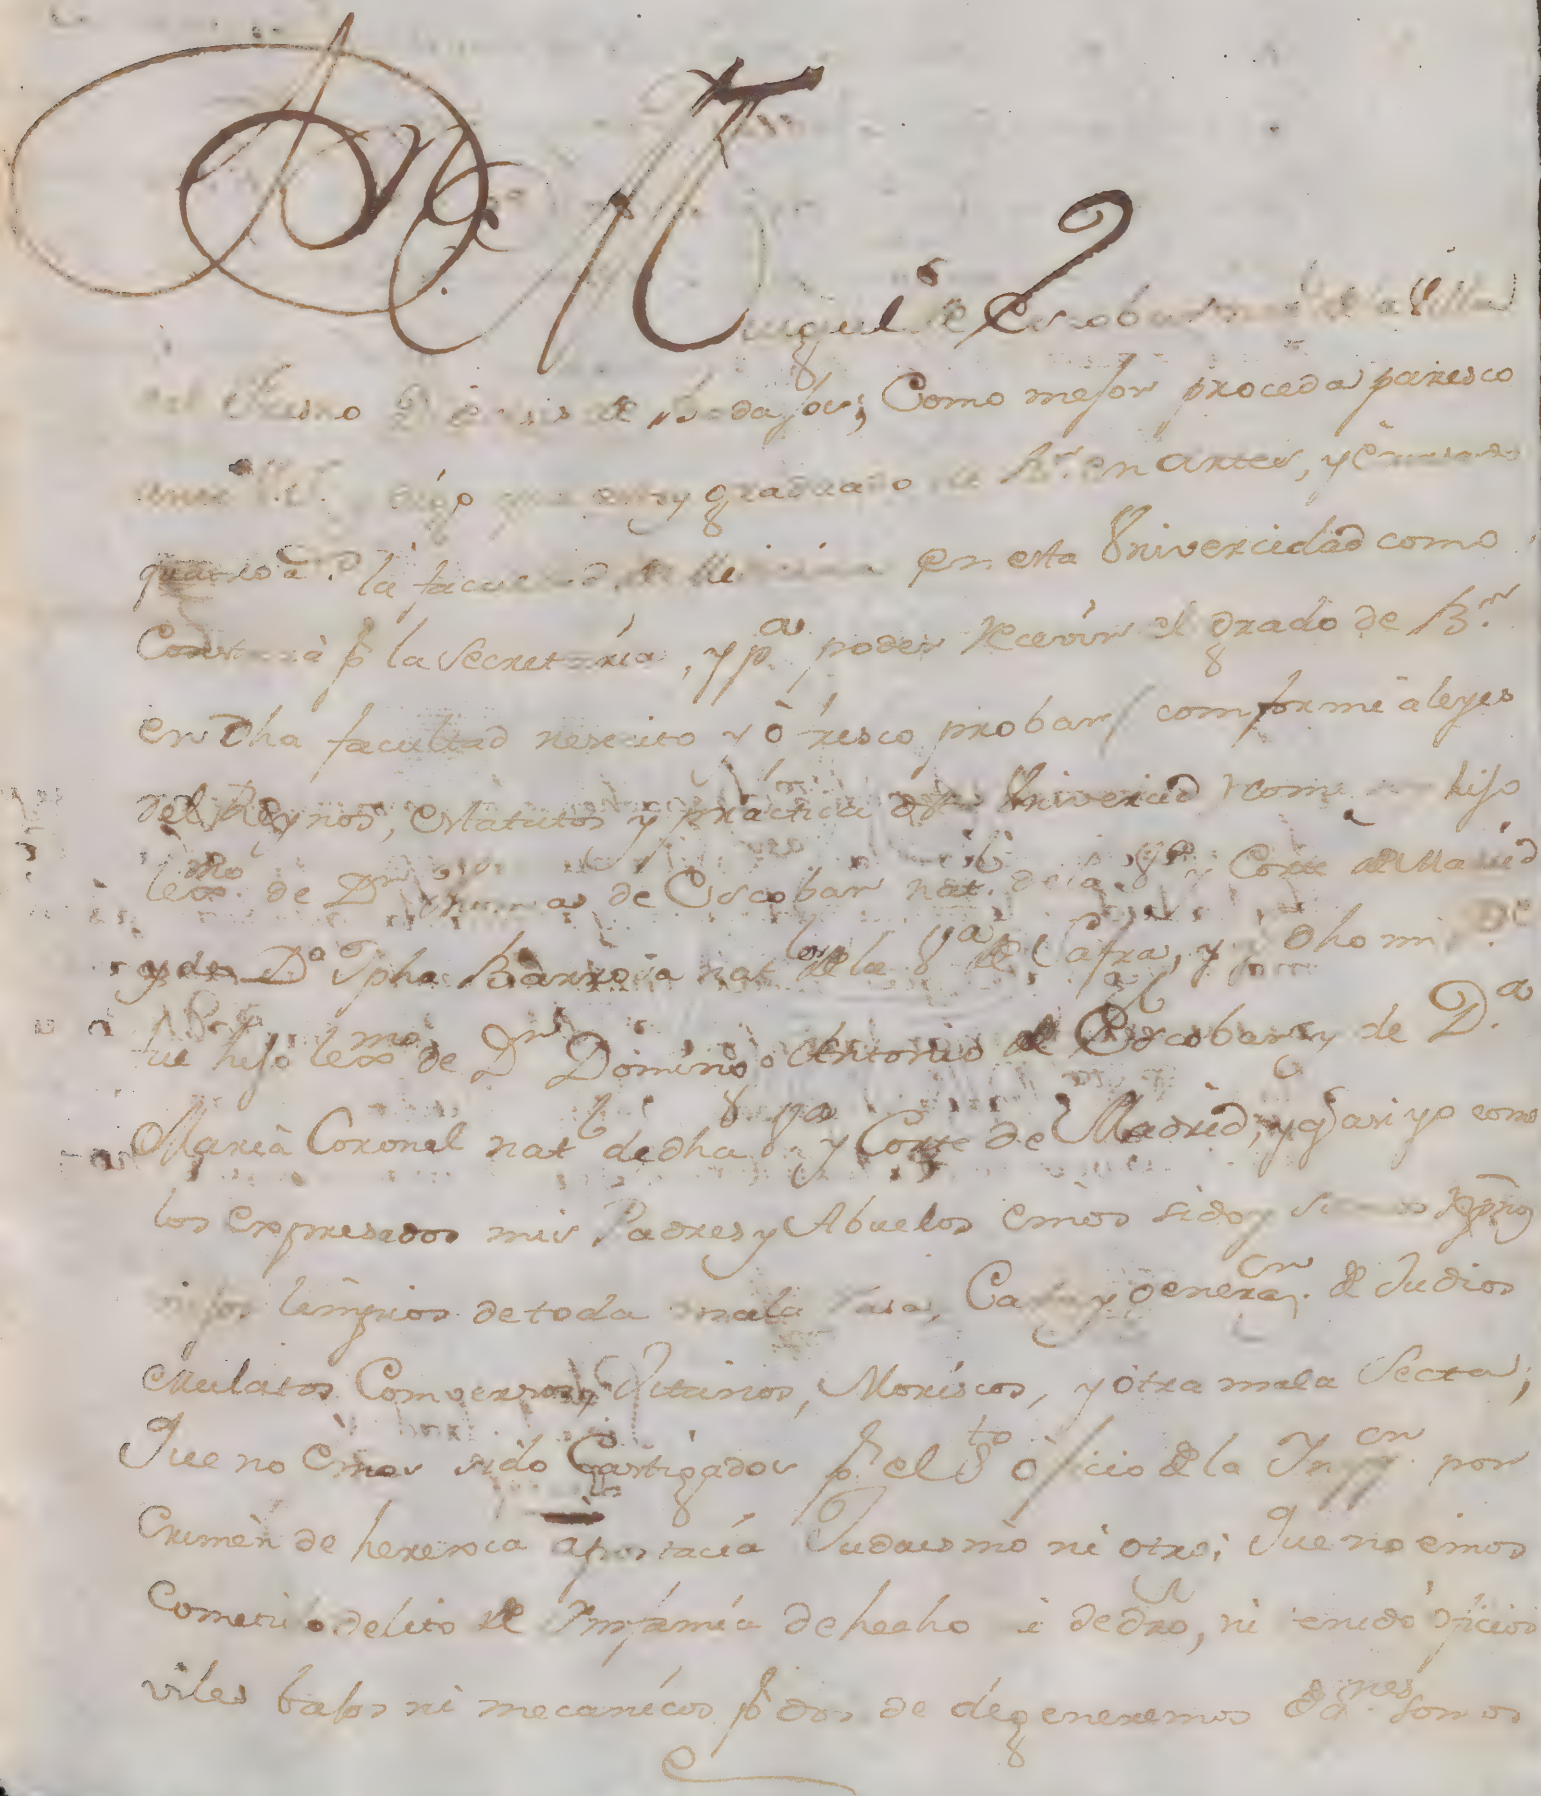 Miguel de Escobar nat. de la Villa
del Fresno Diocesis de Badajos; Como mejor proceda paresco
ante V.S. y digo que estoy graduado de Br. en Artes, y cursado
quatro a.s la facultad de Medicina en esta Univercidad como
Constará p.r la Secretaría, y p.a poder recevir el grado de B.r
en dha facultad nesecito y ófresco probar conforme á leyes
del Reyno, estatutos y práctica desta Univercid como hijo
lexmo. de Dn. de Escobar nat. de la V.a y Corte de Madrid
y de Da. Jpha Barrosa nat.l de la V.a de Cafra, y dho mi P.e
fue hijo lexmo de Dn Domingo Antonio de Escobar y de D.a
María Coronel nat.l de dha V.a y Corte de Madrid; y q asi yo como
los expresados mis Padres y Abuelos emos sido y somos Xpnos
viejos limpios de toda mala rasa, Casta y generacn. de Judios
Mulatos Comversos, Jitanos, Moriscos, y ótra mala Secta;
Que no émos sido Castigados p.r el S.to óficio de la Ynqcn. por
Crimen de heregia apostacía Judaismo ni otro; Que no emos
Cometido delito de Ynfamia de hecho ni de dro, ni tenido óficios
viles bajos ni mecanicos p.r dos de degeneremos de q.nes somos